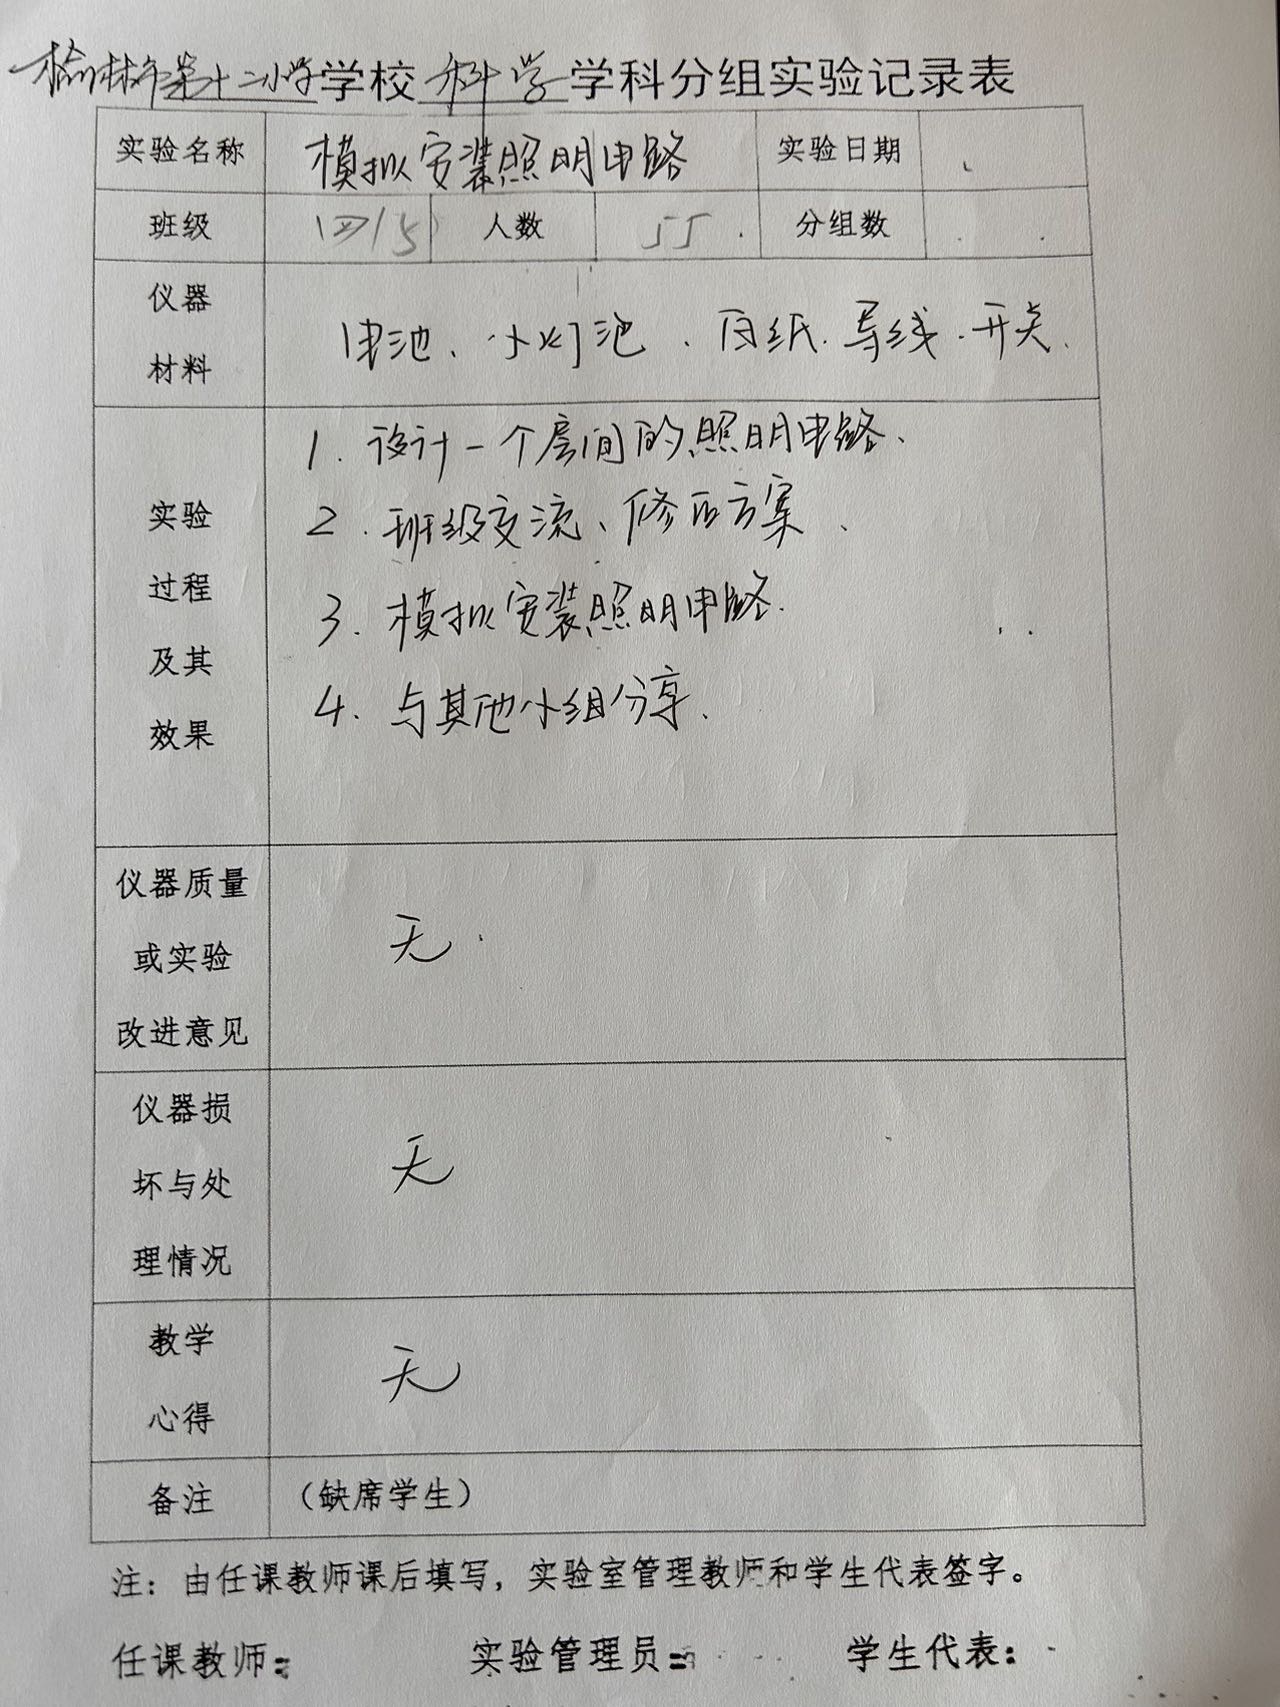 榆林市第十二小学学校科学学科分组实验记录表
实验名称 模拟安装照明电路 实验日期
班级 四/5 人数 55 分组数
仪器
材料
电池、小灯泡、白纸、导线、开关、
实验
过程
及其
效果
1. 设计一个房间的照明电路、
2. 班级交流、修改方案、
3. 模拟安装照明电路.
4. 与其他小组分享、
仪器质量
或实验
改进意见
无.
仪器损
坏与处
理情况
无
教学
心得
无
备注 （缺席学生）
注：由任课教师课后填写，实验室管理教师和学生代表签字。
任课教师： 实验管理员： 学生代表：